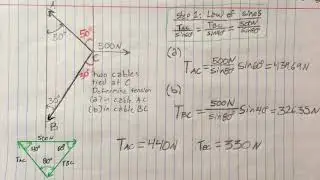 A
50°
50°
500N
C
30°
30°
B
two cables
tied at C
Determine tension
(a) in cable AC
(b) in cable BC
500N
40°
60°
80°
T_AC
T_BC
Step 2: Law of sines
T_AC/sin60° = T_BC/sin40° = 500N/sin80°
(a)
T_AC = 500N/sin80° sin60° = 439.69N
(b)
T_BC = 500N/sin80° sin40° = 326.35N
T_AC = 440N T_BC = 330N